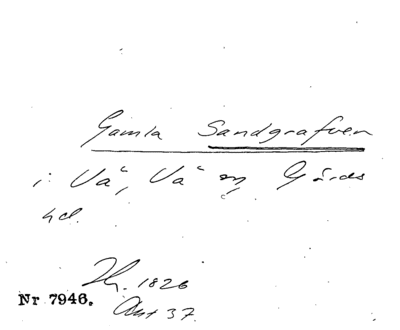 Gamla Sandgrafven
i Vä, Vä sn, Gärds
hd.
1826
Nr 7946.
Akt 37.